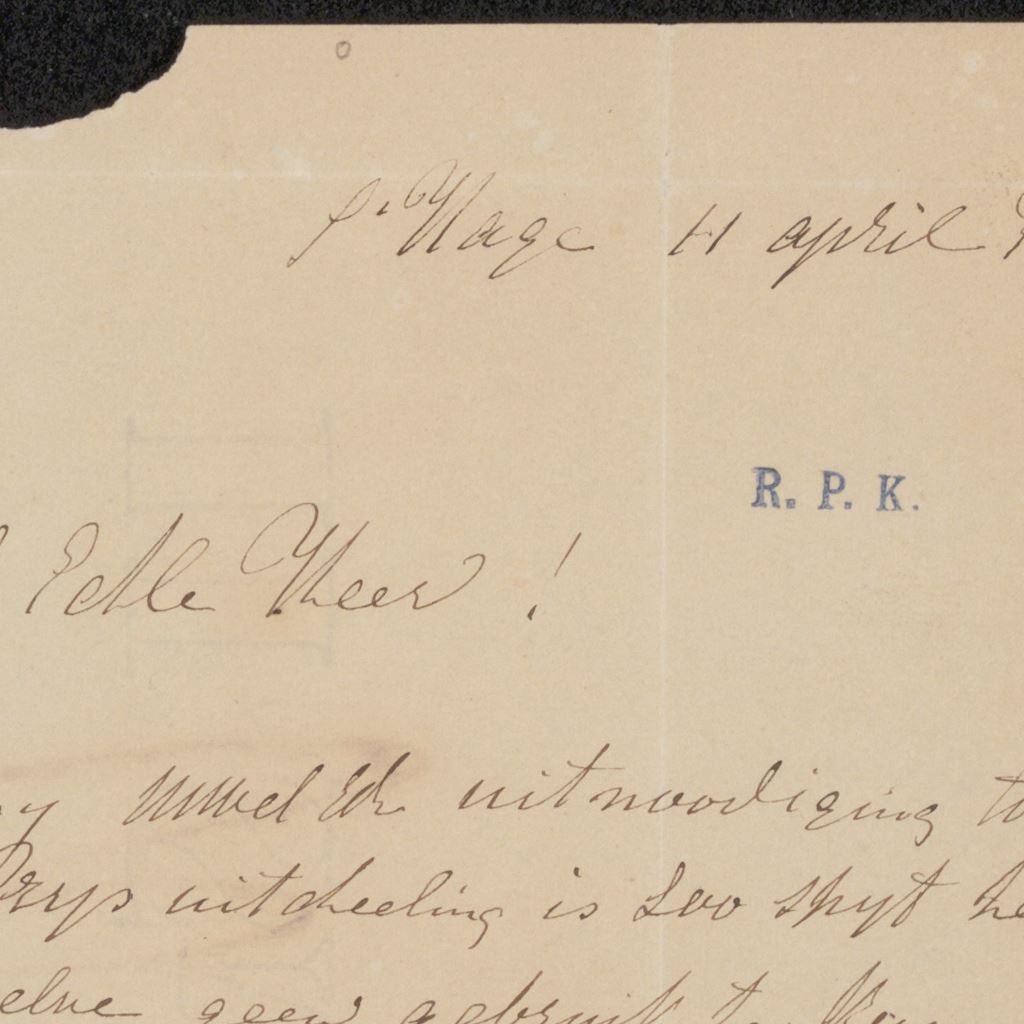 s'Hage 11 april
R. P. K.
Edele Heer!
uwel Ed. uitnoodiging
Prys uitdeeling is Soo spyt
geen gebruik te